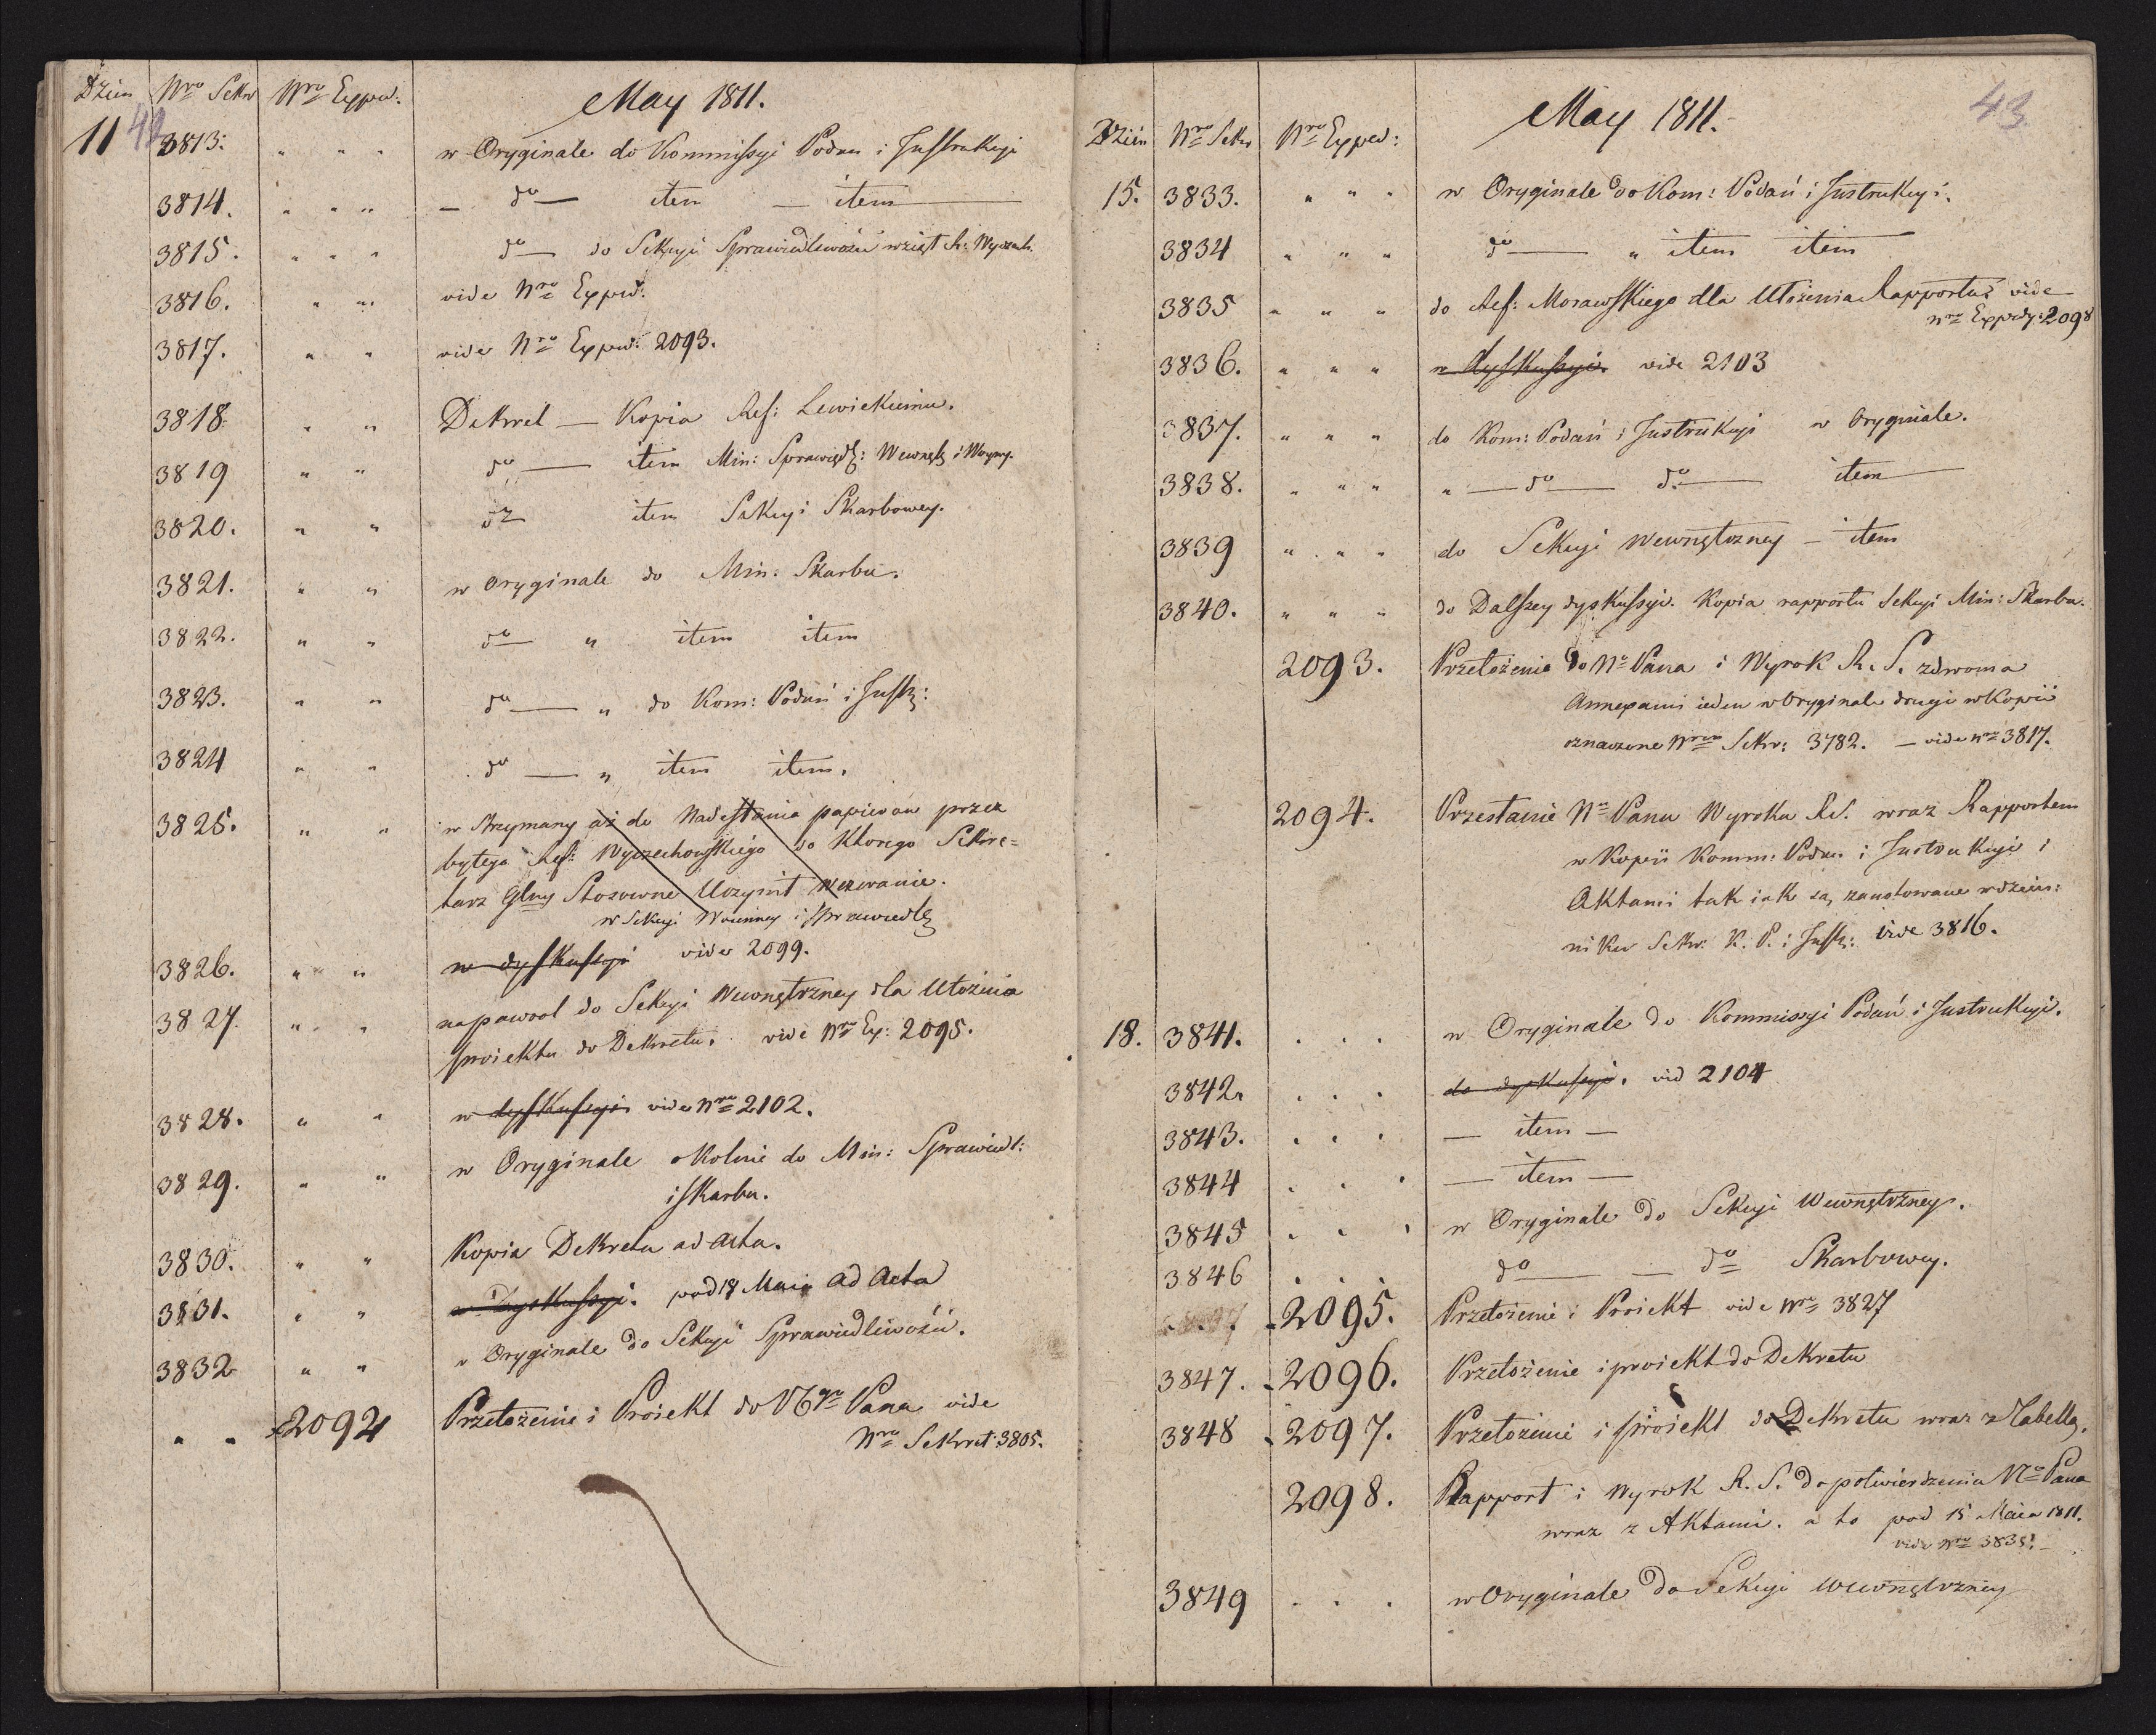 Dzien Nro Sekr Nro Exped. May 1811.
42
11 3813: " " " w Oryginale do Kommissyi Podan i Instrukcyi
3814. " " " — do — item — item —
3815. " " " do — do Sekcyi Sprawiedliwości wziął R: Wyczech.
3816. " " " vide Nro Exped:
3817. " " vide Nro Exped: 2093.
3818. " " Dekret — Kopia Ref: Lewickiemu.
3819 " " do — item Min: Sprawiedl: Wewnętz i Woyny.
3820. " " do item Sekcyi Skarbowey.
3821. " " w Oryginale do Min: Skarbu.
3822. " " do — " item item
3823. " " do — " do Kom: Podań i Instr:
3824 " " do — " item item.
3825. " " wstrzymany aż do Nadesłania papierow przez
byłego Ref: Wyczechowskiego do ktorego Sekre=
tarz Głny Stosowne Uczynił Wezwanie.
w Sekcyi Woienney i Sprawiedl
3826. " " " w dyskussyi vide 2099.
3827. " " napowrot do Sekcyi Wewnętrzney dla Ułożenia
proiektu do Dekretu. vide Nro Ex: 2095.
3828. " " w dyskussyi vide Nro 2102.
3829. " " w Oryginale okolnie do Min: Sprawiedl:
i Skarbu.
3830. " " Kopia Dekretu ad Acta.
3831. " " w Dyskussyi. pod 18 Maia ad Acta
3832 " " w Oryginale do Sekcyi Sprawiedliwości.
" " 2092 Przełożenie i Proiekt do Ngo Pana vide
Nro Sekret: 3805.
43
May 1811.
Dzień Nro Sekr Nro Exped:
15. 3833. " " " w Oryginale do Kom: Podań i Instrukcyi.
3834 " " " do — " item item
3835 " " " do Ref: Morawskiego dla Ułożenia Rapportu vide
Nro Expedy: 2098
3836. " " " w dyskussyi. vide 2103
3837. " " " do Kom: Podań i Instrukcyi w Oryginale.
3838. " " " " — do — do — item —
3839 " " " do Sekcyi Wewnętrzney — item
3840. " " " do Dalszey dyskussyi. Kopia rapportu Sekcyi Min: Skarbu.
2093. Przełożenie do No Pana i Wyrok R. S. z dwoma
Annexami ieden w Oryginale drugi w Kopii
oznaczone Nrem Sekr: 3782. — vide Nro 3817.
2094. Przesłanie No Panu Wyroku R.S. wraz Rapportem
w Kopii Komm: Podan i Instrukcyi i
Aktami tak iak są zanotowane w dzien:
niku Sekr: K. P. i Instr: vide 3816.
18. 3841. . . . w Oryginale do Kommissyi Podań i Instrukcyi.
3842. . . . do dyskussyi. vid 2104
3843. . . . — item —
3844 . . . — item —
3845 . . . w Oryginale do Sekcyi Wewnętrzney.
3846 . . . do — — do Skarbowey.
2095. Przełożenie i Proiekt vide Nro 3827
3847. 2096. Przełożenie i proiekt do Dekretu
3848 2097. Przełożenie i proiekt do Dekretu wraz z Tabellą.
2098. Rapport i Wyrok R. S. do potwierdzenia No Pana
wraz z Aktami. a to pod 15 Maia 1811.
vide Nro 3835. —
3849 . . . w Oryginale do Sekcyi Wewnętrzney